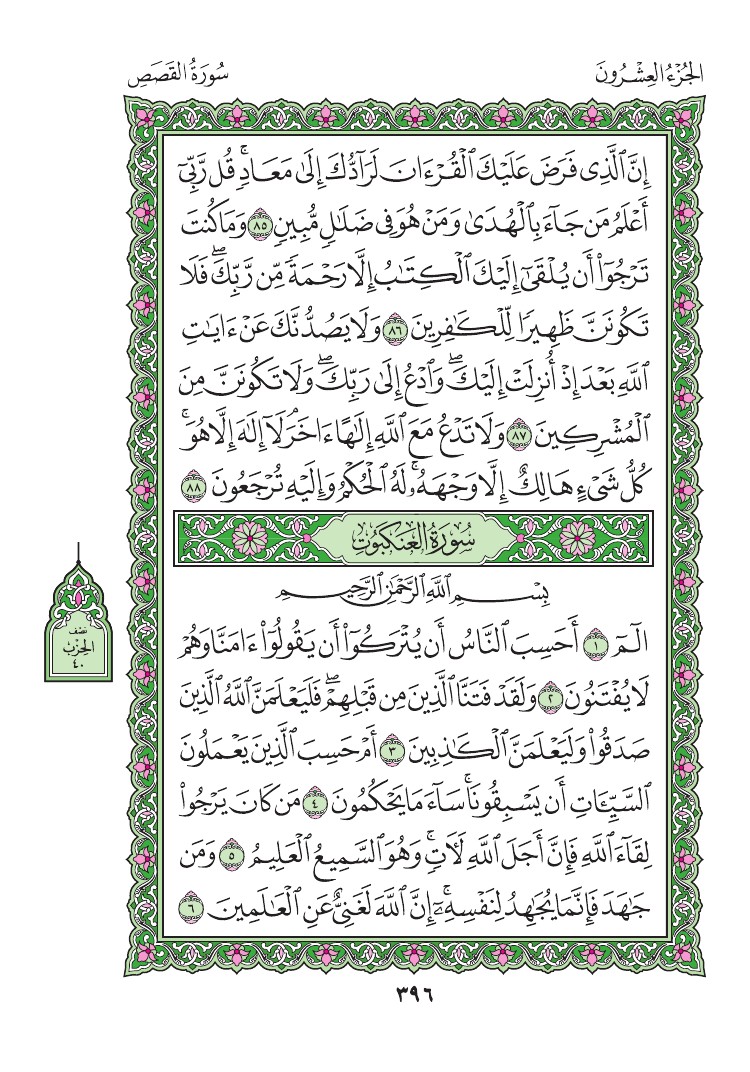 الجُزْءُ العِشْرُونَ
سُورَةُ القَصَصِ
إِنَّ ٱلَّذِى فَرَضَ عَلَيْكَ ٱلْقُرْءَانَ لَرَآدُّكَ إِلَىٰ مَعَادٍۚ قُل رَّبِّىٓ
أَعْلَمُ مَن جَآءَ بِٱلْهُدَىٰ وَمَنْ هُوَ فِى ضَلَٰلٍ مُّبِينٍ ٨٥ وَمَا كُنتَ
تَرْجُوٓاْ أَن يُلْقَىٰٓ إِلَيْكَ ٱلْكِتَٰبُ إِلَّا رَحْمَةً مِّن رَّبِّكَۖ فَلَا
تَكُونَنَّ ظَهِيرًا لِّلْكَٰفِرِينَ ٨٦ وَلَا يَصُدُّنَّكَ عَنْ ءَايَٰتِ
ٱللَّهِ بَعْدَ إِذْ أُنزِلَتْ إِلَيْكَۖ وَٱدْعُ إِلَىٰ رَبِّكَۖ وَلَا تَكُونَنَّ مِنَ
ٱلْمُشْرِكِينَ ٨٧ وَلَا تَدْعُ مَعَ ٱللَّهِ إِلَٰهًا ءَاخَرَۘ لَآ إِلَٰهَ إِلَّا هُوَۚ
كُلُّ شَىْءٍ هَالِكٌ إِلَّا وَجْهَهُۥۚ لَهُ ٱلْحُكْمُ وَإِلَيْهِ تُرْجَعُونَ ٨٨
سُورَةُ العَنكَبُوتِ
بِسْمِ ٱللَّهِ ٱلرَّحْمَٰنِ ٱلرَّحِيمِ
الٓمٓ ١ أَحَسِبَ ٱلنَّاسُ أَن يُتْرَكُوٓاْ أَن يَقُولُوٓاْ ءَامَنَّا وَهُمْ
لَا يُفْتَنُونَ ٢ وَلَقَدْ فَتَنَّا ٱلَّذِينَ مِن قَبْلِهِمْۖ فَلَيَعْلَمَنَّ ٱللَّهُ ٱلَّذِينَ
صَدَقُواْ وَلَيَعْلَمَنَّ ٱلْكَٰذِبِينَ ٣ أَمْ حَسِبَ ٱلَّذِينَ يَعْمَلُونَ
ٱلسَّيِّـَٔاتِ أَن يَسْبِقُونَاۚ سَآءَ مَا يَحْكُمُونَ ٤ مَن كَانَ يَرْجُواْ
لِقَآءَ ٱللَّهِ فَإِنَّ أَجَلَ ٱللَّهِ لَأٓتٍۚ وَهُوَ ٱلسَّمِيعُ ٱلْعَلِيمُ ٥ وَمَن
جَٰهَدَ فَإِنَّمَا يُجَٰهِدُ لِنَفْسِهِۦٓۚ إِنَّ ٱللَّهَ لَغَنِىٌّ عَنِ ٱلْعَٰلَمِينَ ٦
نصف
الحِزْب
٤٠
٣٩٦